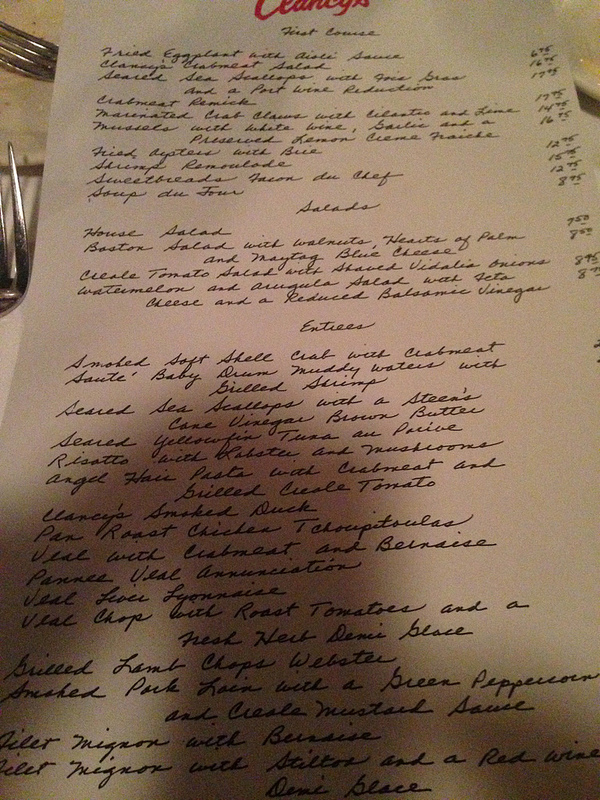 Clancy's
First Course
Fried Eggplant with Aioli Sauce 6.95
Clancy's Crabmeat Salad 16.95
Seared Sea Scallops with Fois Gras 17.95
and a Port Wine Reduction
Crabmeat Remick 17.95
Marinated Crab Claws with Cilantro and Lime 14.95
Mussels with White Wine, Garlic and a 16.95
Preserved Lemon Creme Fraiche
Fried Oysters with Brie 12.95
Shrimp Remoulade 15.95
Sweetbreads Facon du Chef 12.95
Soup du Jour 8.95
Salads
House Salad 7.50
Boston Salad with Walnuts, Hearts of Palm 8.50
and Maytag Blue Cheese
Creole Tomato Salad with Shaved Vidalia Onions 8.95
Watermelon and Arugula Salad with Feta
Cheese and a Reduced Balsamic Vinegar
Entrees
Smoked Soft Shell Crab with Crabmeat
Sauté Baby Drum Muddy Waters with
Grilled Shrimp
Seared Sea Scallops with a Steen's
Cane Vinegar Brown Butter
Seared Yellowfin Tuna au Poivre
Risotto with Lobster and Mushrooms
Angel Hair Pasta with Crabmeat and
Grilled Creole Tomato
Clancy's Smoked Duck
Pan Roast Chicken Tchoupitoulas
Veal with Crabmeat and Bernaise
Pannee Veal Annunciation
Veal Liver Lyonnaise
Veal Chop with Roast Tomatoes and a
Fresh Herb Demi Glace
Grilled Lamb Chops Webster
Smoked Pork Loin with a Green Peppercorn
and Creole Mustard Sauce
Filet Mignon with Bernaise
Filet Mignon with Stilton and a Red Wine
Demi Glace